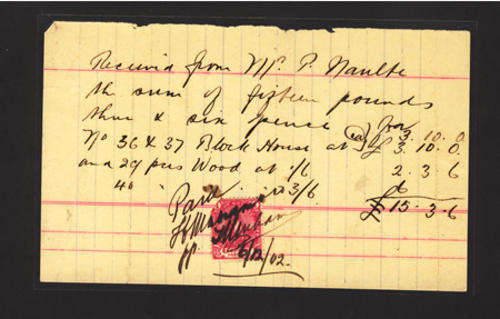 Received from Mr. P.
the sum of fifteen pounds
three & six pence for
No 36 & 37 Block House at (ea) £ 3. 10. 0
3. 10. 0
and 29 pcs Wood at 1/6 2. 3. 6
40 " " 3/6 6
Paid £ 15. 3. 6
6/12/02.